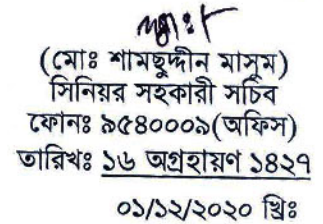 (মোঃ শামছুদ্দীন মাসুম)
সিনিয়র সহকারী সচিব
ফোনঃ ৯৫৪০০০৯(অফিস)
তারিখঃ ১৬ অগ্রহায়ণ ১৪২৭
০১/১২/২০২০ খ্রিঃ